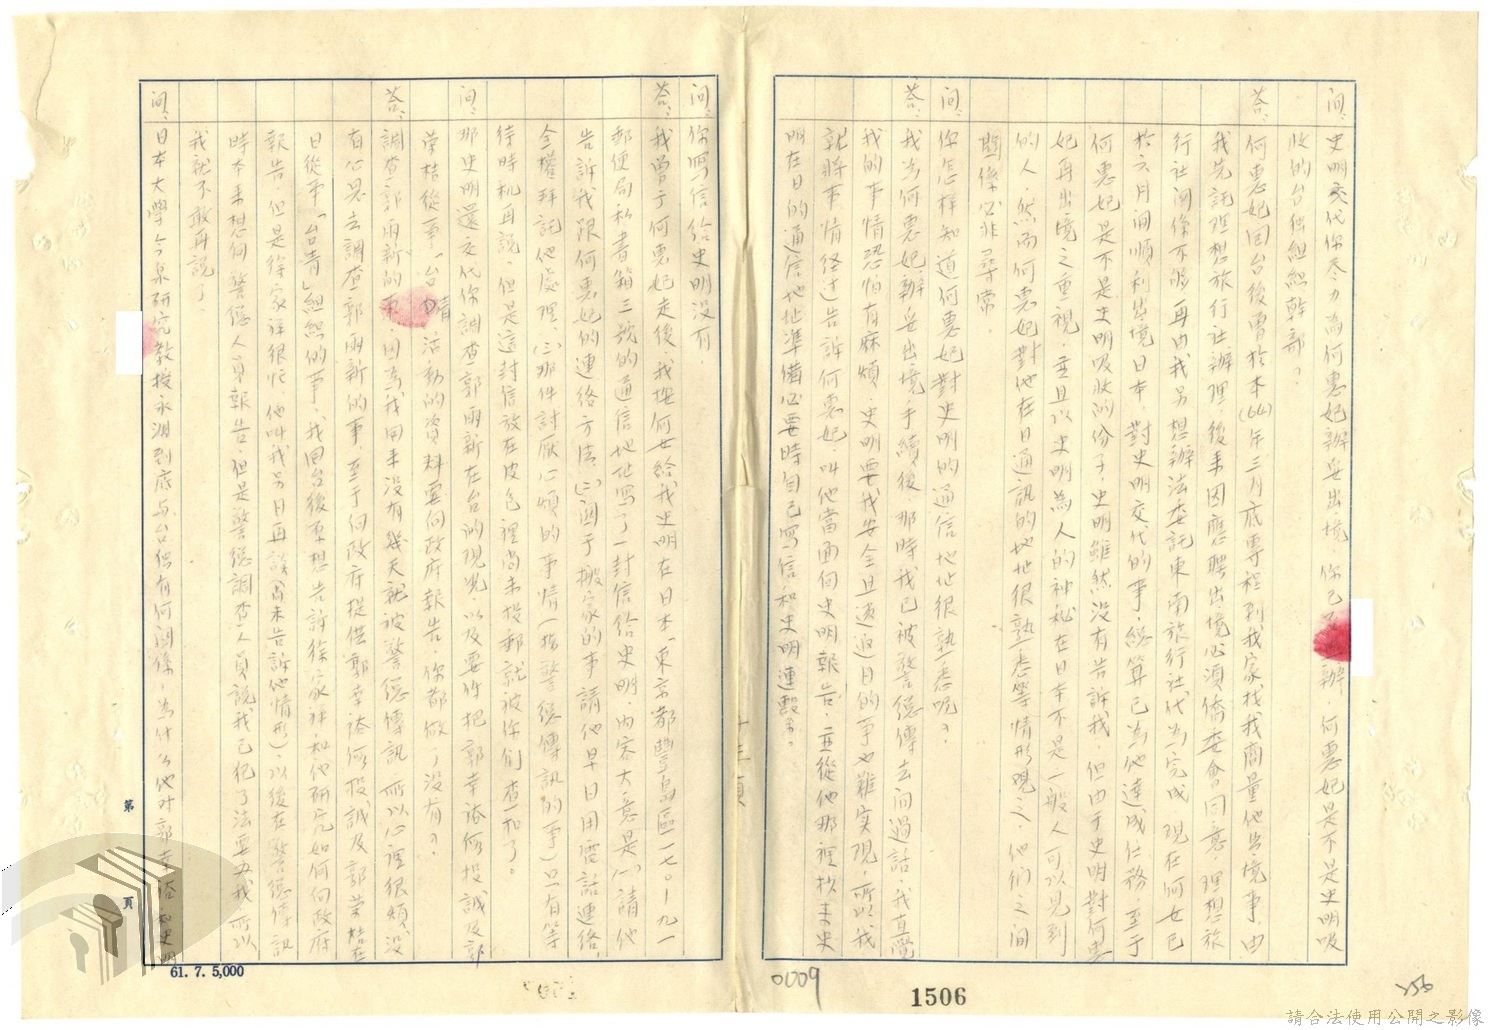 問：史明交代你尽力為何惠妃辦妥出境，你已否照辦，何惠妃是不是史明吸
收的台独組織幹部？
答：何惠妃回台後曾於本(64)年三月底專程到我家找我商量他出境事，由
我先託理想旅行社辦理，後來因應聘出境必須僑委會同意，理想旅
行社関係不够，再由我另想辦法委託東南旅行社代為完成，現在何女已
於六月間順利出境日本，對史明交代的事，總算已為他達成任務，至于
何惠妃是不是史明吸收的份子，史明雖然没有告訴我，但由于史明對何惠
妃再出境之重視，並且以史明為人的神秘在日本不是一般人可以見到
的人，然而何惠妃對他在日通訊的地址很熟悉等情形觀之，他們之間
関係必非尋常。
問：你怎样知道何惠妃對史明的通信地址很熟悉呢？
答：我為何惠妃辦妥出境手續後，那時我已被警總傳去問過話，我直覺
我的事情恐怕有麻煩，史明要我安全且速返日的事也難实現，所以我
就將事情经过告訴何惠妃，叫他當面向史明報告，並從他那裡抄來史
明在日的通信地址準備必要時自己寫信和史明連繫。
十三頁
問：你寫信給史明没有。
答：我曾于何惠妃走後，我按何女給我史明在日本「東京都豐島區一七〇－九一
郵便局私書箱三號的通信地址寫了一封信給史明，内容大意是㈠請他
告訴我跟何惠妃的連络方法，㈡関于搬家的事請他早日用電話連络，
全權拜託他處理，㈢那件討厭心煩的事情(指警總傳訊的事)只有等
待時机再説，但是這封信放在皮包裡尚未投郵就被你們查扣了。
問：那史明還交代你調查郭雨新在台的現况，以及要你把郭幸裕何投誠及郭
榮桔從事「台青」活動的資料要向政府報告，你都做了没有？
答：調查郭雨新的事，因為我回來没有幾天就被警總傳訊，所以心裡很煩，没
有心思去調查郭雨新的事，至于向政府提供郭幸裕何投誠及郭榮桔在
日從事「台青」組織的事，我回台後原想告訴徐家祥，和他研究如何向政府
報告，但是徐家祥很忙，他叫我另日再談(尚未告訴他情形)，以後在警總傳訊
時本來想向警總人員報告，但是警總調查人員説我已犯了法要办我，所以
我就不敢再説了。
問：日本大學今泉研究教授永淵到底与台独有何関係，為什么他对郭幸裕和史明
第　頁
61. 7. 5,000
0009
1506
256
請合法使用公開之影像